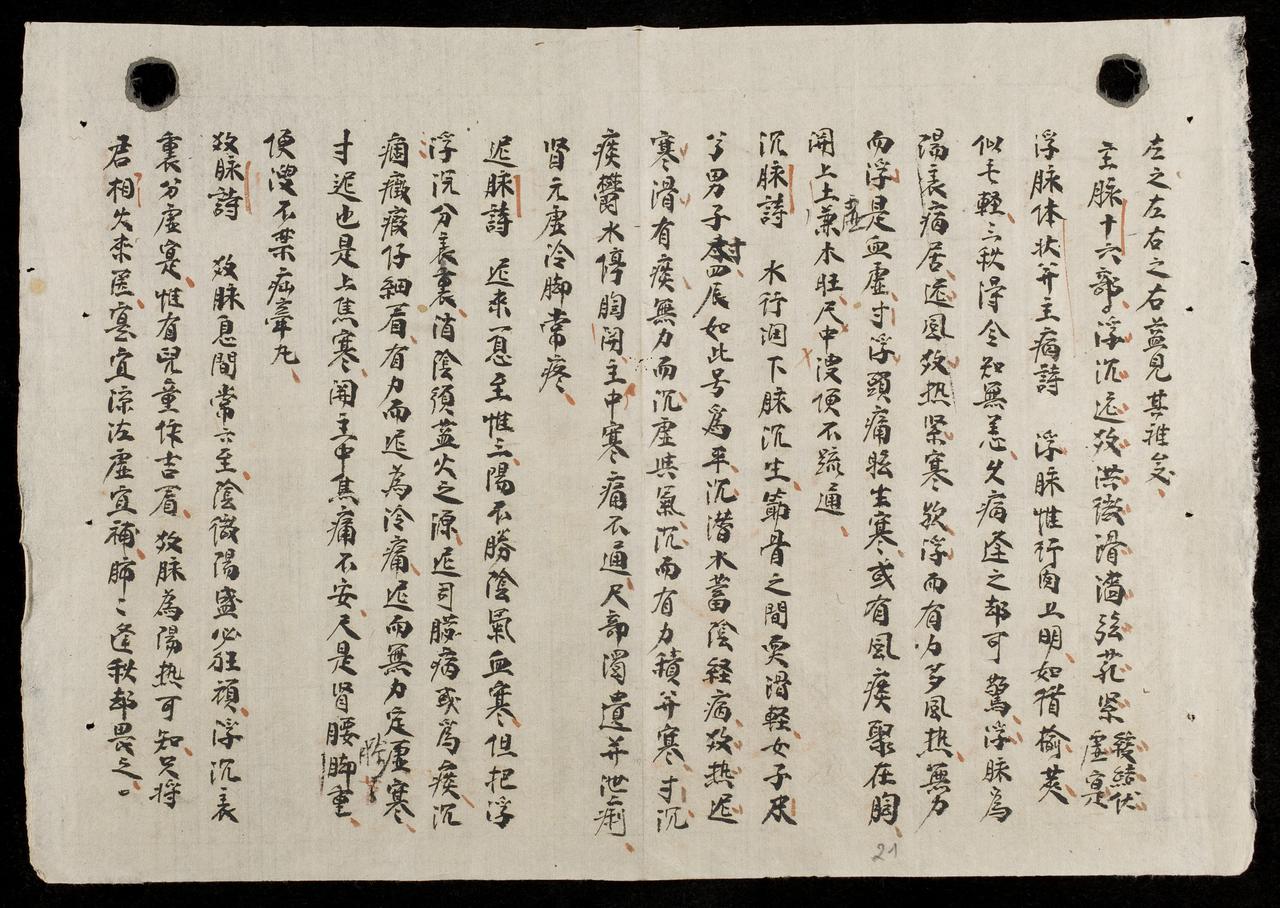 左之左右之右葢見其雅矣
主脉十六部浮沉迟数洪微滑濇弦芤緊緩結伏虛寔
浮脉体狀并主病詩 浮脉惟行肉上明如循榆莢
似毛輕三秋得令知無恙久病逢之却可驚浮脉為
陽表病居迟風数热紧寒欤浮而有力多風热無力
而浮是血虛寸浮頭痛眩生寒或有風痰聚在胸
関上土虛兼木旺尺中溲便不疏通
沉脉詩 水行润下脉沉生筋骨之間耎滑輕女子尺
兮男子寸四辰如此号為平沉潜水蓄陰経病数热迟
寒滑有痰無力而沉虛與氣沉而有力積并寒寸沉
痰欎水停胸関主中寒痛不通尺部濁遺并泄痢
腎元虛冷脚常疼
迟脉詩 迟来一息至惟三陽不勝陰氣血寒但把浮
浮沉分表裏消陰須葢火之源迟司臟病或為痰沉
痼癥瘕仔細看有力而迟為冷痛迟而無力定虛寒
寸迟也是上焦寒関主中焦痛不安尺是腎腰脚重
便溲不禁疝牽丸
数脉詩 数脉息間常六至陰微陽盛必狂煩浮沉表
裏分虛寔惟有兒童作吉看数脉為陽热可知只將
君相火来医寔宜涼泻虛宜補肺〻逢秋却畏之
21